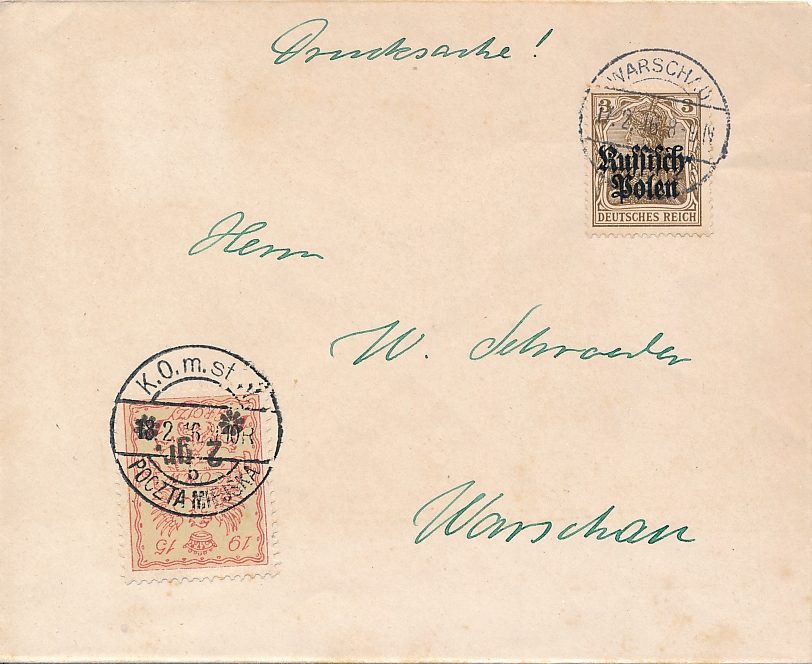 Drucksache!
WARSCHAU
3 3
Russisch-
Polen
DEUTSCHES REICH
Herrn
W. Schroeder
Warschau
K.O.m.st.W.
13.2.16 10R
2 gr.
b
POCZTA MIEJSKA
19 15